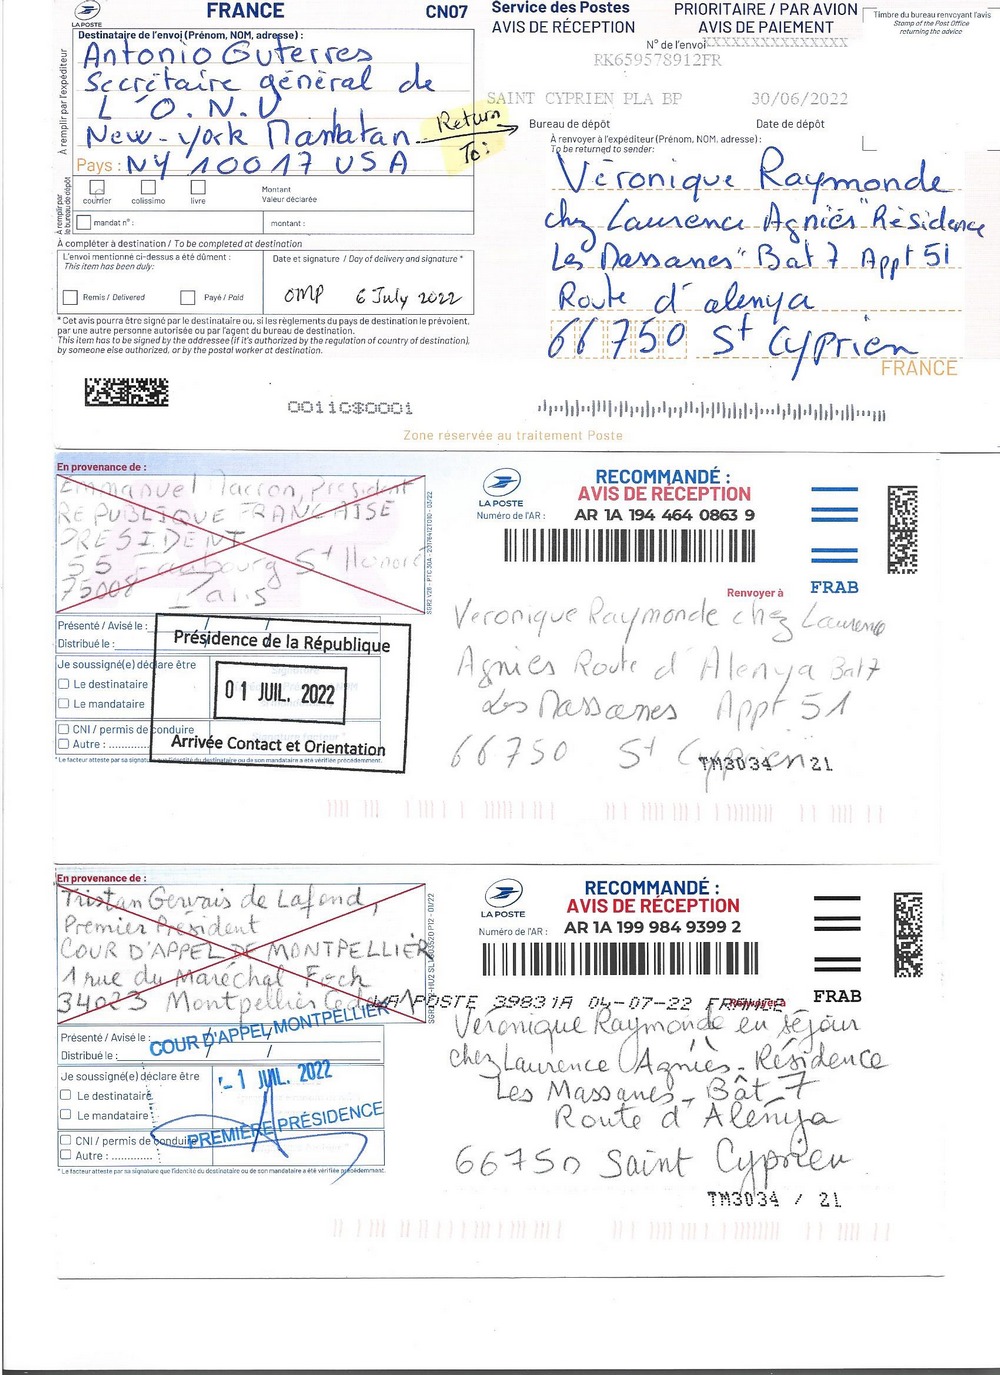 LA POSTE
FRANCE
CN07
Service des Postes
AVIS DE RÉCEPTION
PRIORITAIRE / PAR AVION
AVIS DE PAIEMENT
Timbre du bureau renvoyant l'avis
Stamp of the Post Office
returning the advice
N° de l'envoi XXXXXXXXXXXXXXX
RK659578912FR
SAINT CYPRIEN PLA BP 30/06/2022
Bureau de dépôt
Date de dépôt
À remplir par l'expéditeur
Destinataire de l'envoi (Prénom, NOM, adresse) :
Antonio Guterres
Secrétaire général de
L'O.N.U
New-York Manhatan
Pays : NY 10017 USA
Return
To:
À renvoyer à l'expéditeur (Prénom, NOM, adresse) :
To be returned to sender:
Véronique Raymonde
chez Laurence Agniès "Résidence
Les Massanes" Bat 7 Appt 51
Route d'alenya
66750 St Cyprien
FRANCE
À remplir par
le bureau de dépôt
courrier
colissimo
livre
Montant
Valeur déclarée
mandat n° :
montant :
À compléter à destination / To be completed at destination
L'envoi mentionné ci-dessus a été dûment :
This item has been duly:
Remis / Delivered
Payé / Paid
Date et signature / Day of delivery and signature *
OMP 6 July 2022
*Cet avis pourra être signé par le destinataire ou, si les règlements du pays de destination le prévoient,
par une autre personne autorisée ou par l'agent du bureau de destination.
This item has to be signed by the addressee (if it's authorized by the regulation of country of destination),
by someone else authorized, or by the postal worker at destination.
0011C$0001
Zone réservée au traitement Poste
En provenance de :
Emmanuel Macron, Président
REPUBLIQUE FRANCAISE
PRESIDENT
55 Faubourg St Honoré
75008 Paris
LA POSTE
RECOMMANDÉ :
AVIS DE RÉCEPTION
Numéro de l'AR : AR 1A 194 464 0863 9
FRAB
Renvoyer à
Veronique Raymonde chez Laurence
Agniès Route d'Alenya Bat 7
Les Massanes Appt 51
66750 St Cyprien
TM3034 21
Présenté / Avisé le :
Distribué le :
Je soussigné(e) déclare être
Le destinataire
Le mandataire
CNI / permis de conduire
Autre : ............
* Le facteur atteste par sa signature que l'identité du destinataire ou de son mandataire a été vérifiée précédemment.
Présidence de la République
01 JUIL. 2022
Arrivée Contact et Orientation
En provenance de :
Tristan Gervais de Lafond,
Premier Président
COUR D'APPEL DE MONTPELLIER
1 rue du Maréchal Foch
34023 Montpellier Cedex
LA POSTE
RECOMMANDÉ :
AVIS DE RÉCEPTION
Numéro de l'AR : AR 1A 199 984 9399 2
FRAB
LA POSTE 39831A 04-07-22 FRANCE
Renvoyer à
Véronique Raymonde en séjour
chez Laurence Agniès - Résidence
Les Massanes - Bât 7
Route d'Alénya
66750 Saint Cyprien
TM3034 / 21
Présenté / Avisé le :
Distribué le :
Je soussigné(e) déclare être
Le destinataire
Le mandataire
CNI / permis de conduire
Autre : ............
* Le facteur atteste par sa signature que l'identité du destinataire ou de son mandataire a été vérifiée précédemment.
COUR D'APPEL MONTPELLIER
-1 JUIL. 2022
PREMIÈRE PRÉSIDENCE